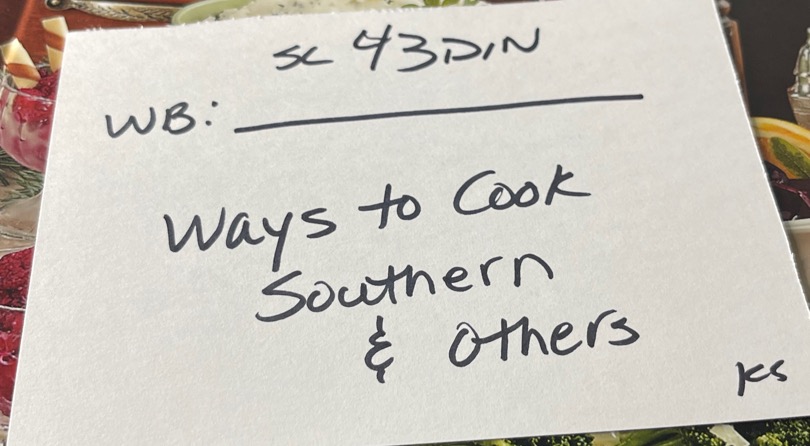 SC 43DIN
WB:
Ways to Cook
Southern
& Others
KS